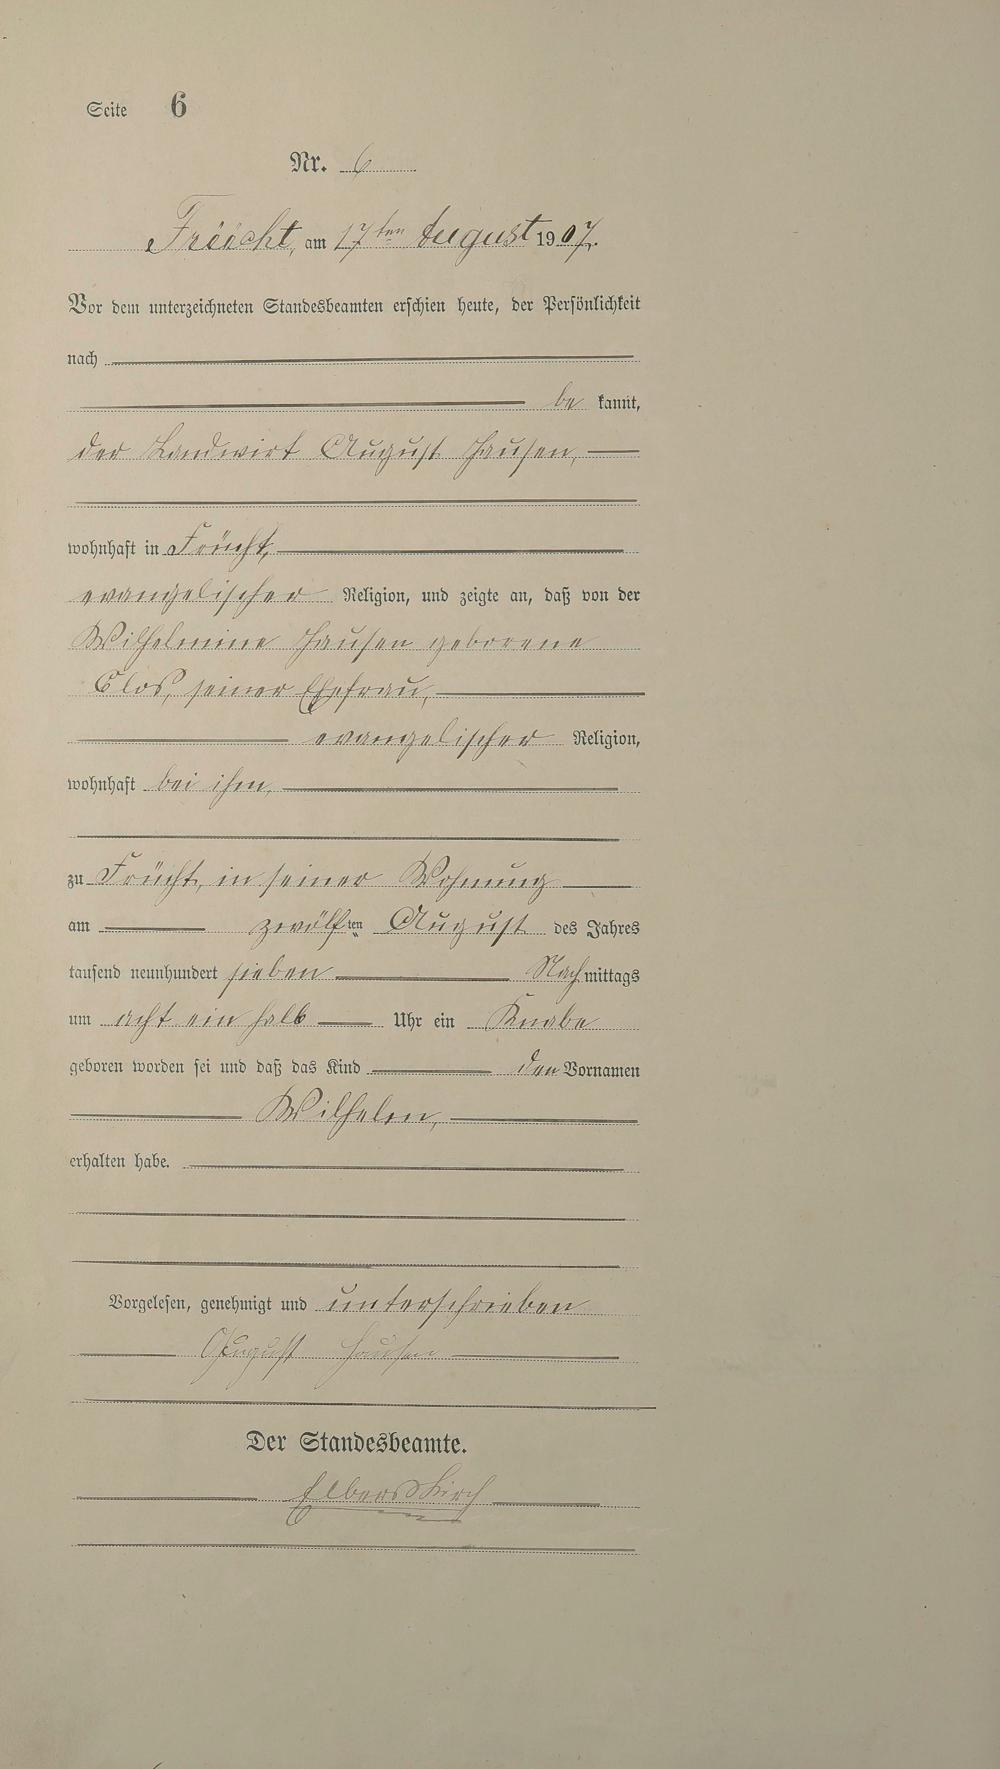 Seite 6
Nr. 6
Frücht, am 17ten August 1907.
Vor dem unterzeichneten Standesbeamten erschien heute, der Persönlichkeit
nach
be kannt,
der Landwirt August Hausen,
wohnhaft in Frücht,
evangelischer Religion, und zeigte an, daß von der
Wilhelmine Hausen geborene
Clos, seiner Ehefrau,
evangelischer Religion,
wohnhaft bei ihm,
zu Frücht, in seiner Wohnung
am zwölften August des Jahres
tausend neunhundert sieben Nachmittags
um acht ein halb Uhr ein Knabe
geboren worden sei und daß das Kind den Vornamen
Wilhelm,
erhalten habe.
Vorgelesen, genehmigt und unterschrieben
August Hausen
Der Standesbeamte.
Elberskirch